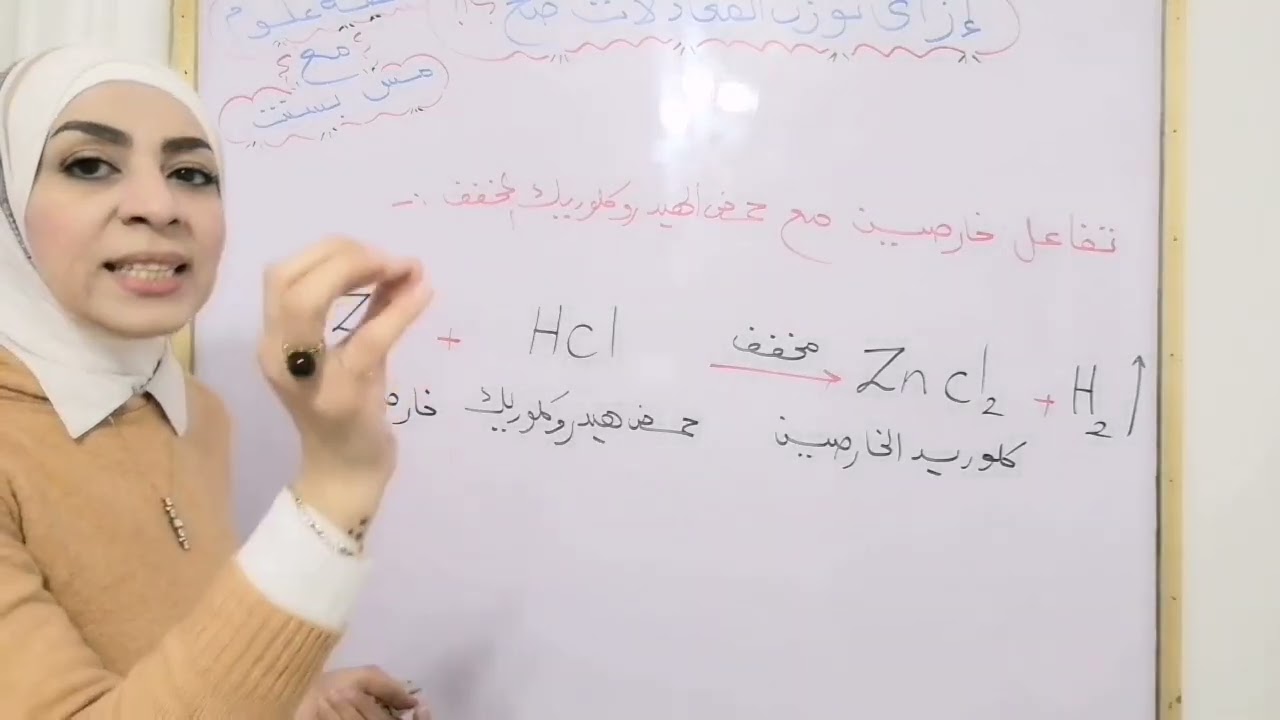 إزاي نوزن المعادلات صح ؟!!
علوم
مع
مس بسنت
تفاعل خارصين مع حمض الهيدروكلوريك المخفف :-
Z + HCl مخفف → ZnCl₂ + H₂ ↑
حمض هيدروكلوريك كلوريد الخارصين